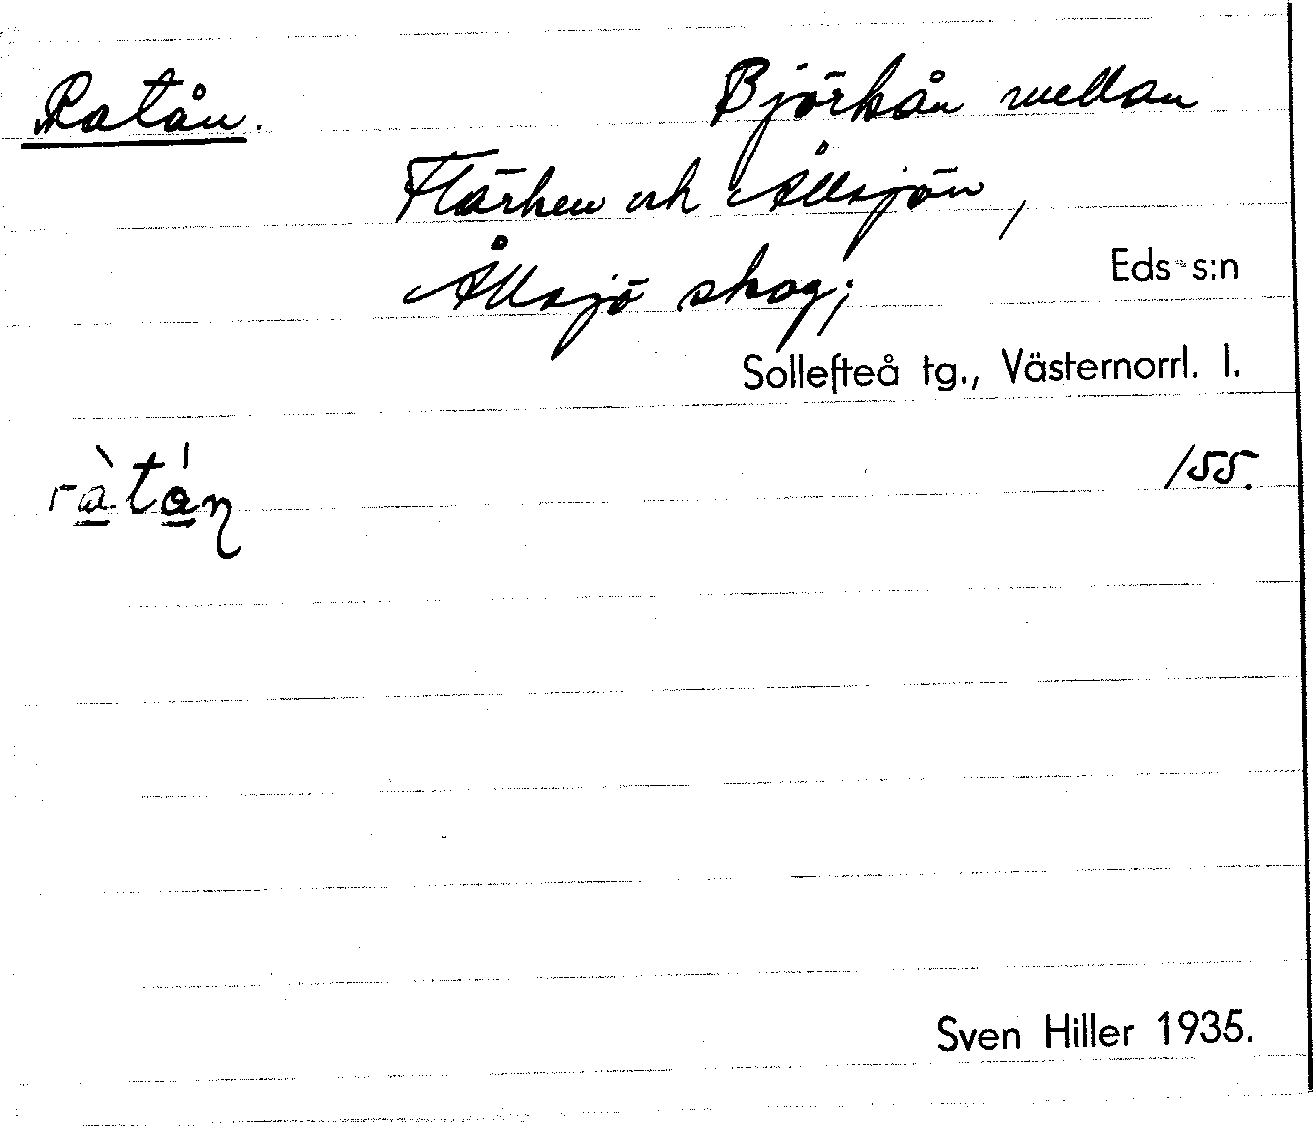 Ratån. Björkån mellan
Flärken och Ållsjön,
Ållsjö skog; Eds s:n
Sollefteå tg., Västernorrl. l.
155.
Sven Hiller 1935.